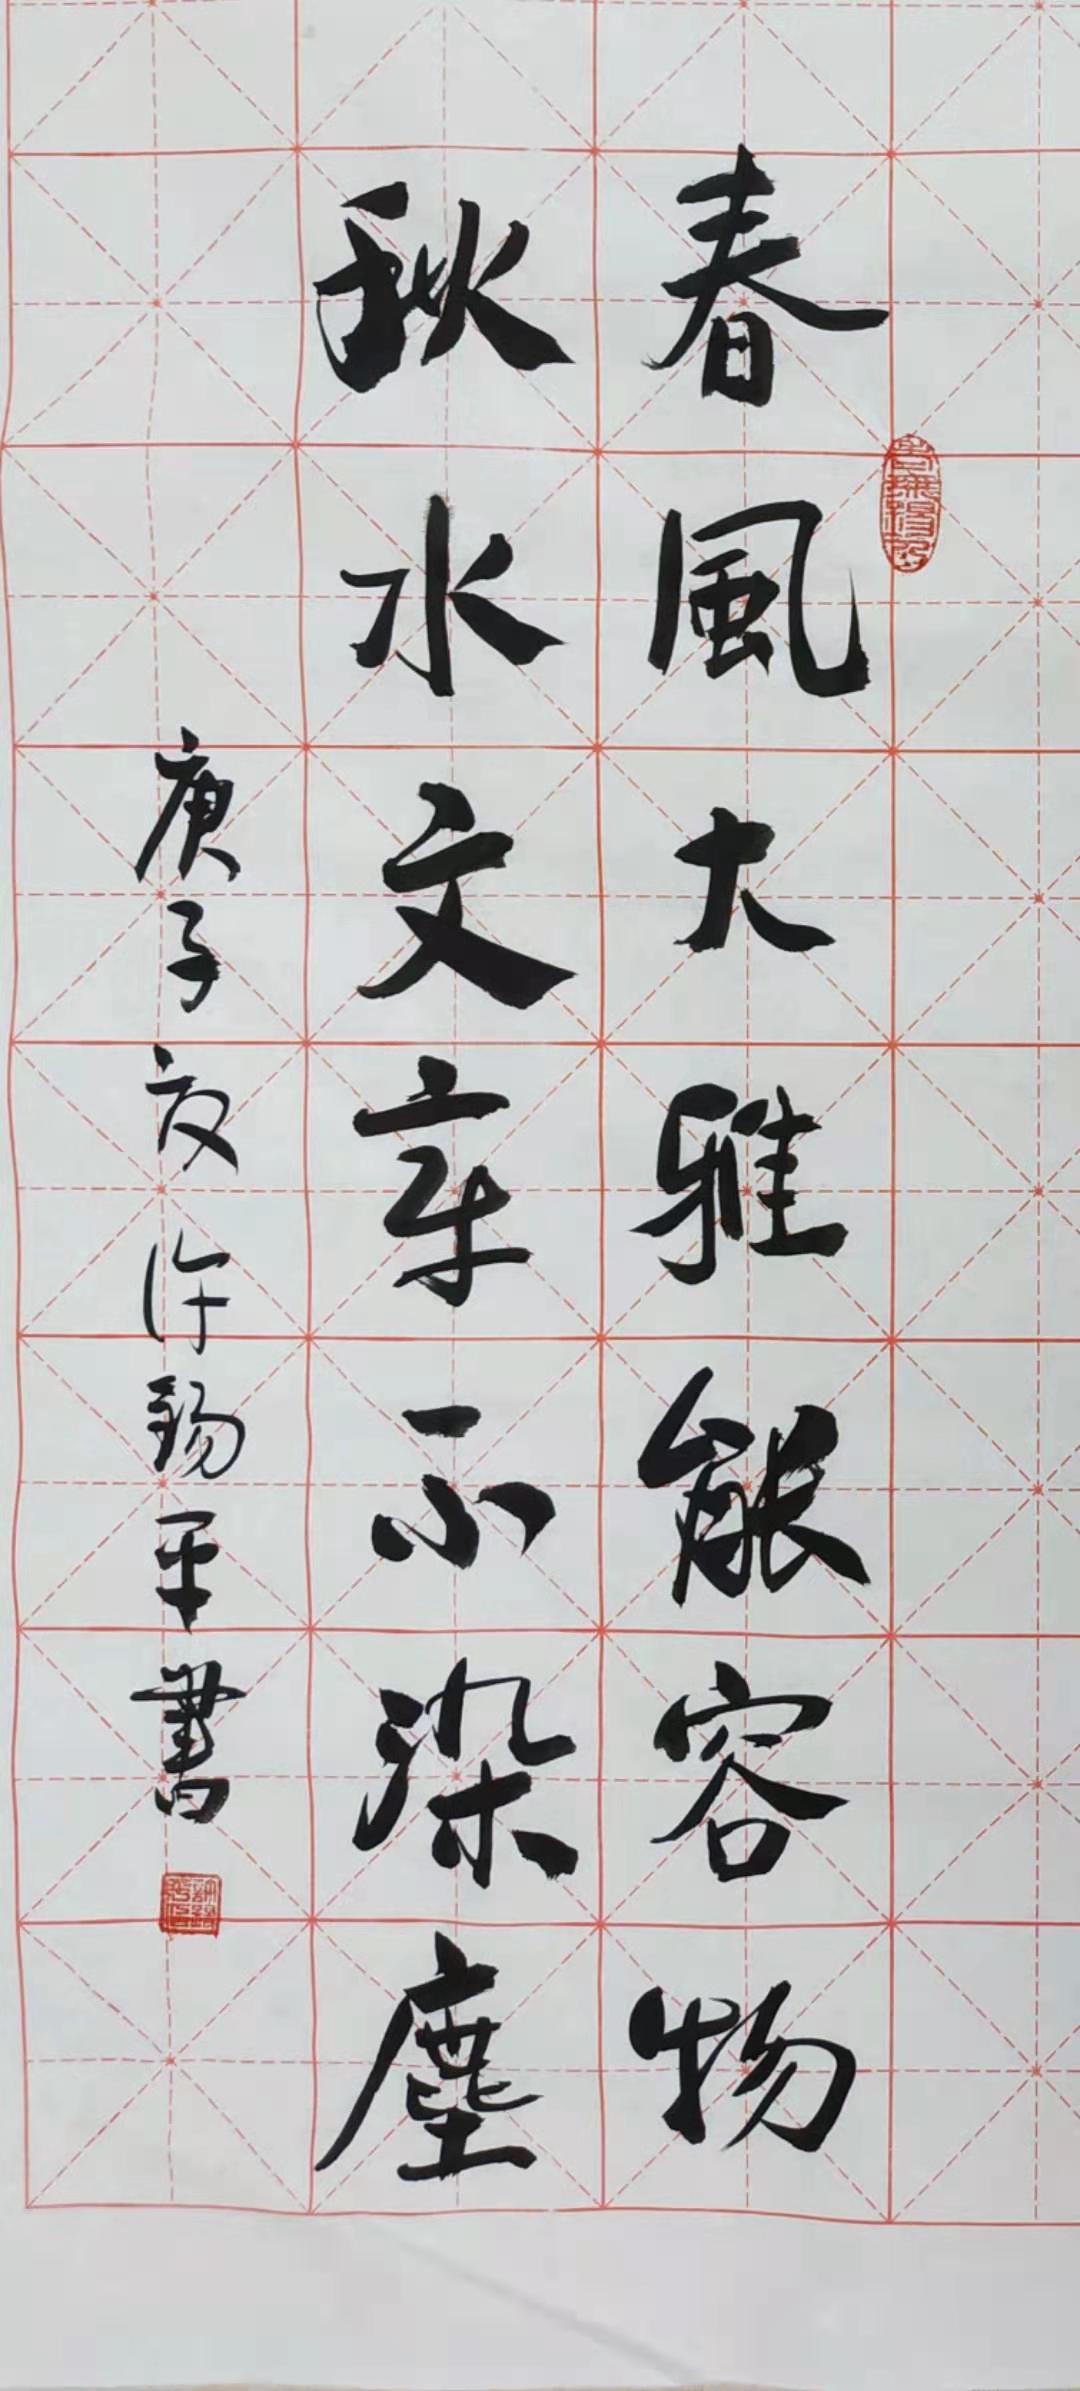 春風大雅能容物
秋水文章不染塵
庚子夏許錫平書